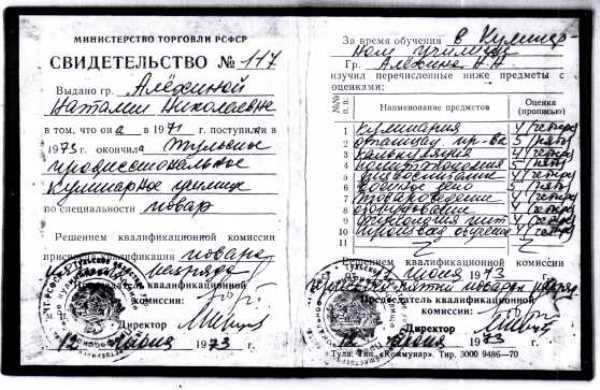 МИНИСТЕРСТВО ТОРГОВЛИ РСФСР
СВИДЕТЕЛЬСТВО № 117
Выдано гр. Алёхиной
Наталии Николаевне
в том, что она в 1971 г. поступила в
1973 г. окончила Тульское
профессиональное
кулинарное училище
по специальности повар
Решением квалификационной комиссии
присвоена квалификация повара
пятого разряда
Председатель квалификационной
комиссии:
Директор
12 июня 1973 г.
За время обучения в Кулинар-
ном училище
Гр. Алёхина Н.Н.
изучил перечисленные ниже предметы с
оценками:
№№ п. п. Наименование предметов Оценка (прописью)
1 кулинария 4 (четыре)
2 организац. пр-ва 5 (пять)
3 калькуляция 4 (четыре)
4 политэкономия 5 (пять)
5 4 (четыре)
6 военное дело 5 (пять)
7 товароведение 4 (четыре)
8 оборудование 4 (четыре)
9 физиология пит. 4 (четыре)
10 обучение 4 (четыре)
11
Решением квалификационной комиссии
12 июня 1973
повара
Председатель квалификационной
комиссии:
Директор
12 июня 1973 г.
Тула. Тип. «Коммунар». Тир. 3000 9486—70